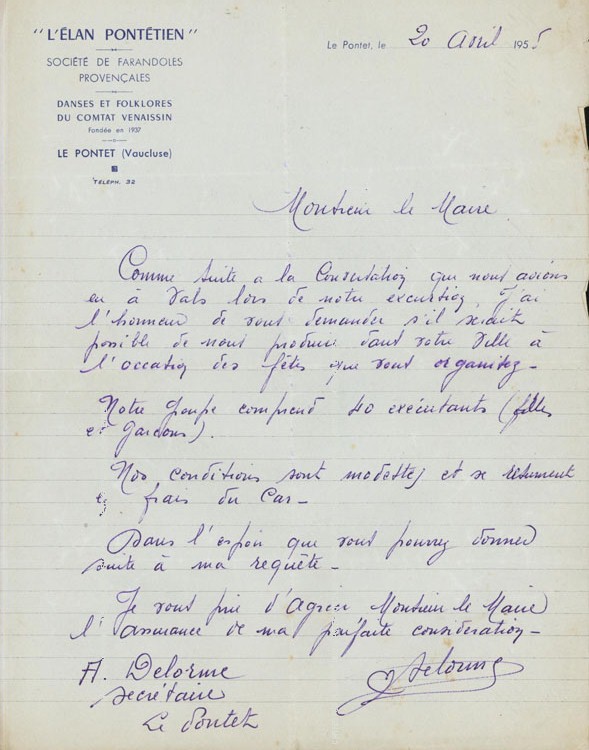 "L'ÉLAN PONTÉTIEN"
SOCIÉTÉ DE FARANDOLES
PROVENÇALES
DANSES ET FOLKLORES
DU COMTAT VENAISSIN
Fondée en 1937
LE PONTET (Vaucluse)
TÉLÉPH. 32
Le Pontet, le 20 Avril 1955
Monsieur le Maire
Comme suite a la Conversation que nous avions
eu à Vals lors de notre excursion, j'ai
l'honneur de vous demander s'il serait
possible de nous produire dans votre Ville à
l'occasion des fêtes que vous organisez -
Notre groupe comprend 40 exécutants (filles
et Garcons).
Nos conditions sont modestes et se résument
frais du Car -
Dans l'espoir que vous pourrez donner
suite à ma requête -
Je vous prie d'Agréer Monsieur le Maire
l'assurance de ma parfaite consideration -
A. Delorme
secrétaire
Le Pontet
Delorme